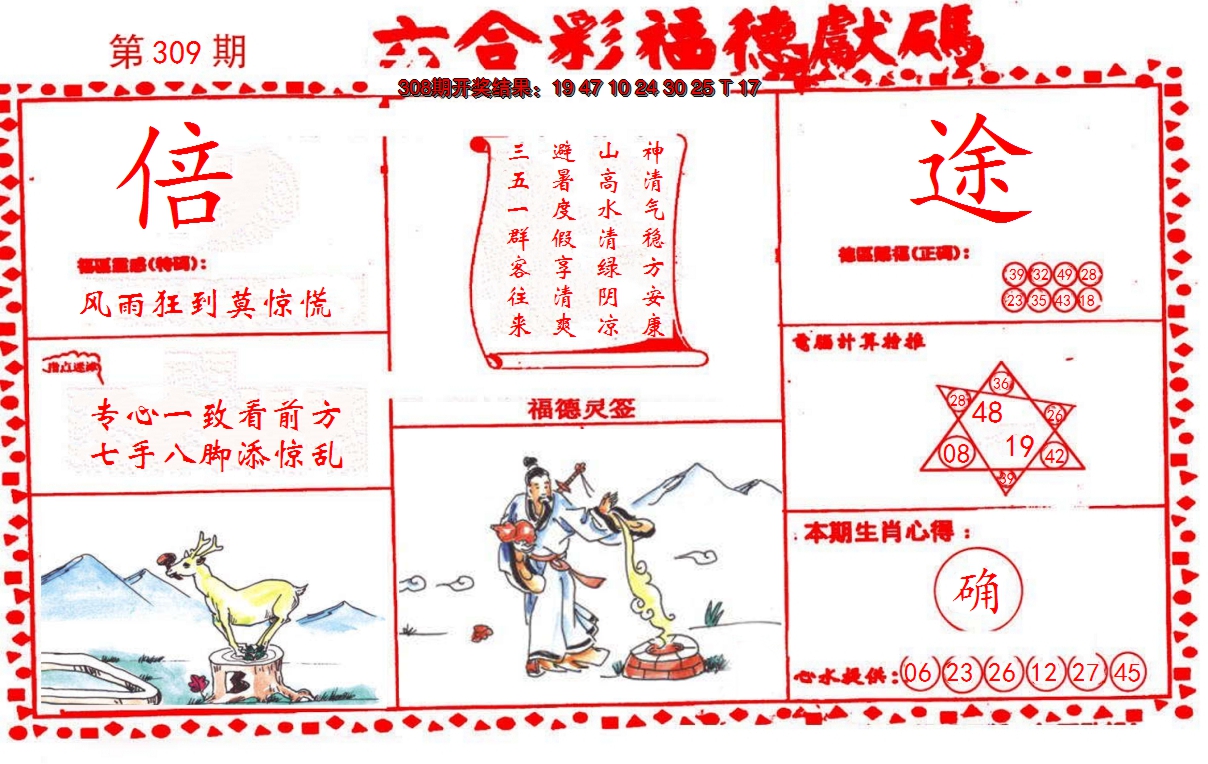 第309期
六合彩福德獻碼
308期开奖结果：19 47 10 24 30 25 T 17
倍
福區靈感(特碼)：
风雨狂到莫惊慌
指点迷津
专心一致看前方
七手八脚添惊乱
神清气稳方安康
山高水清绿阴凉
避暑度假享清爽
三五一群客往来
福德灵签
途
德區賜福(正碼)：
39 32 49 28
23 35 43 18
電腦计算抢推
36
28 48 26
08 19 42
39
本期生肖心得：
确
心水提供：06 23 26 12 27 45